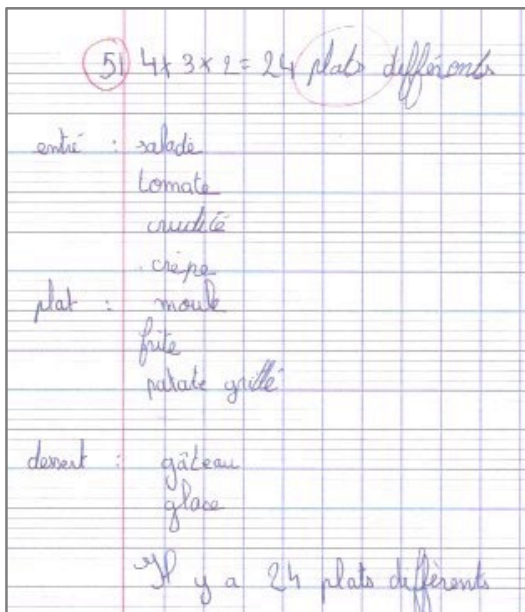 5) 4 x 3 x 2 = 24 plats différents
entré : salade
tomate
crudité
crèpe
plat : moule
frite
patate grillé
dessert : gâteau
glace
Il y a 24 plats différents